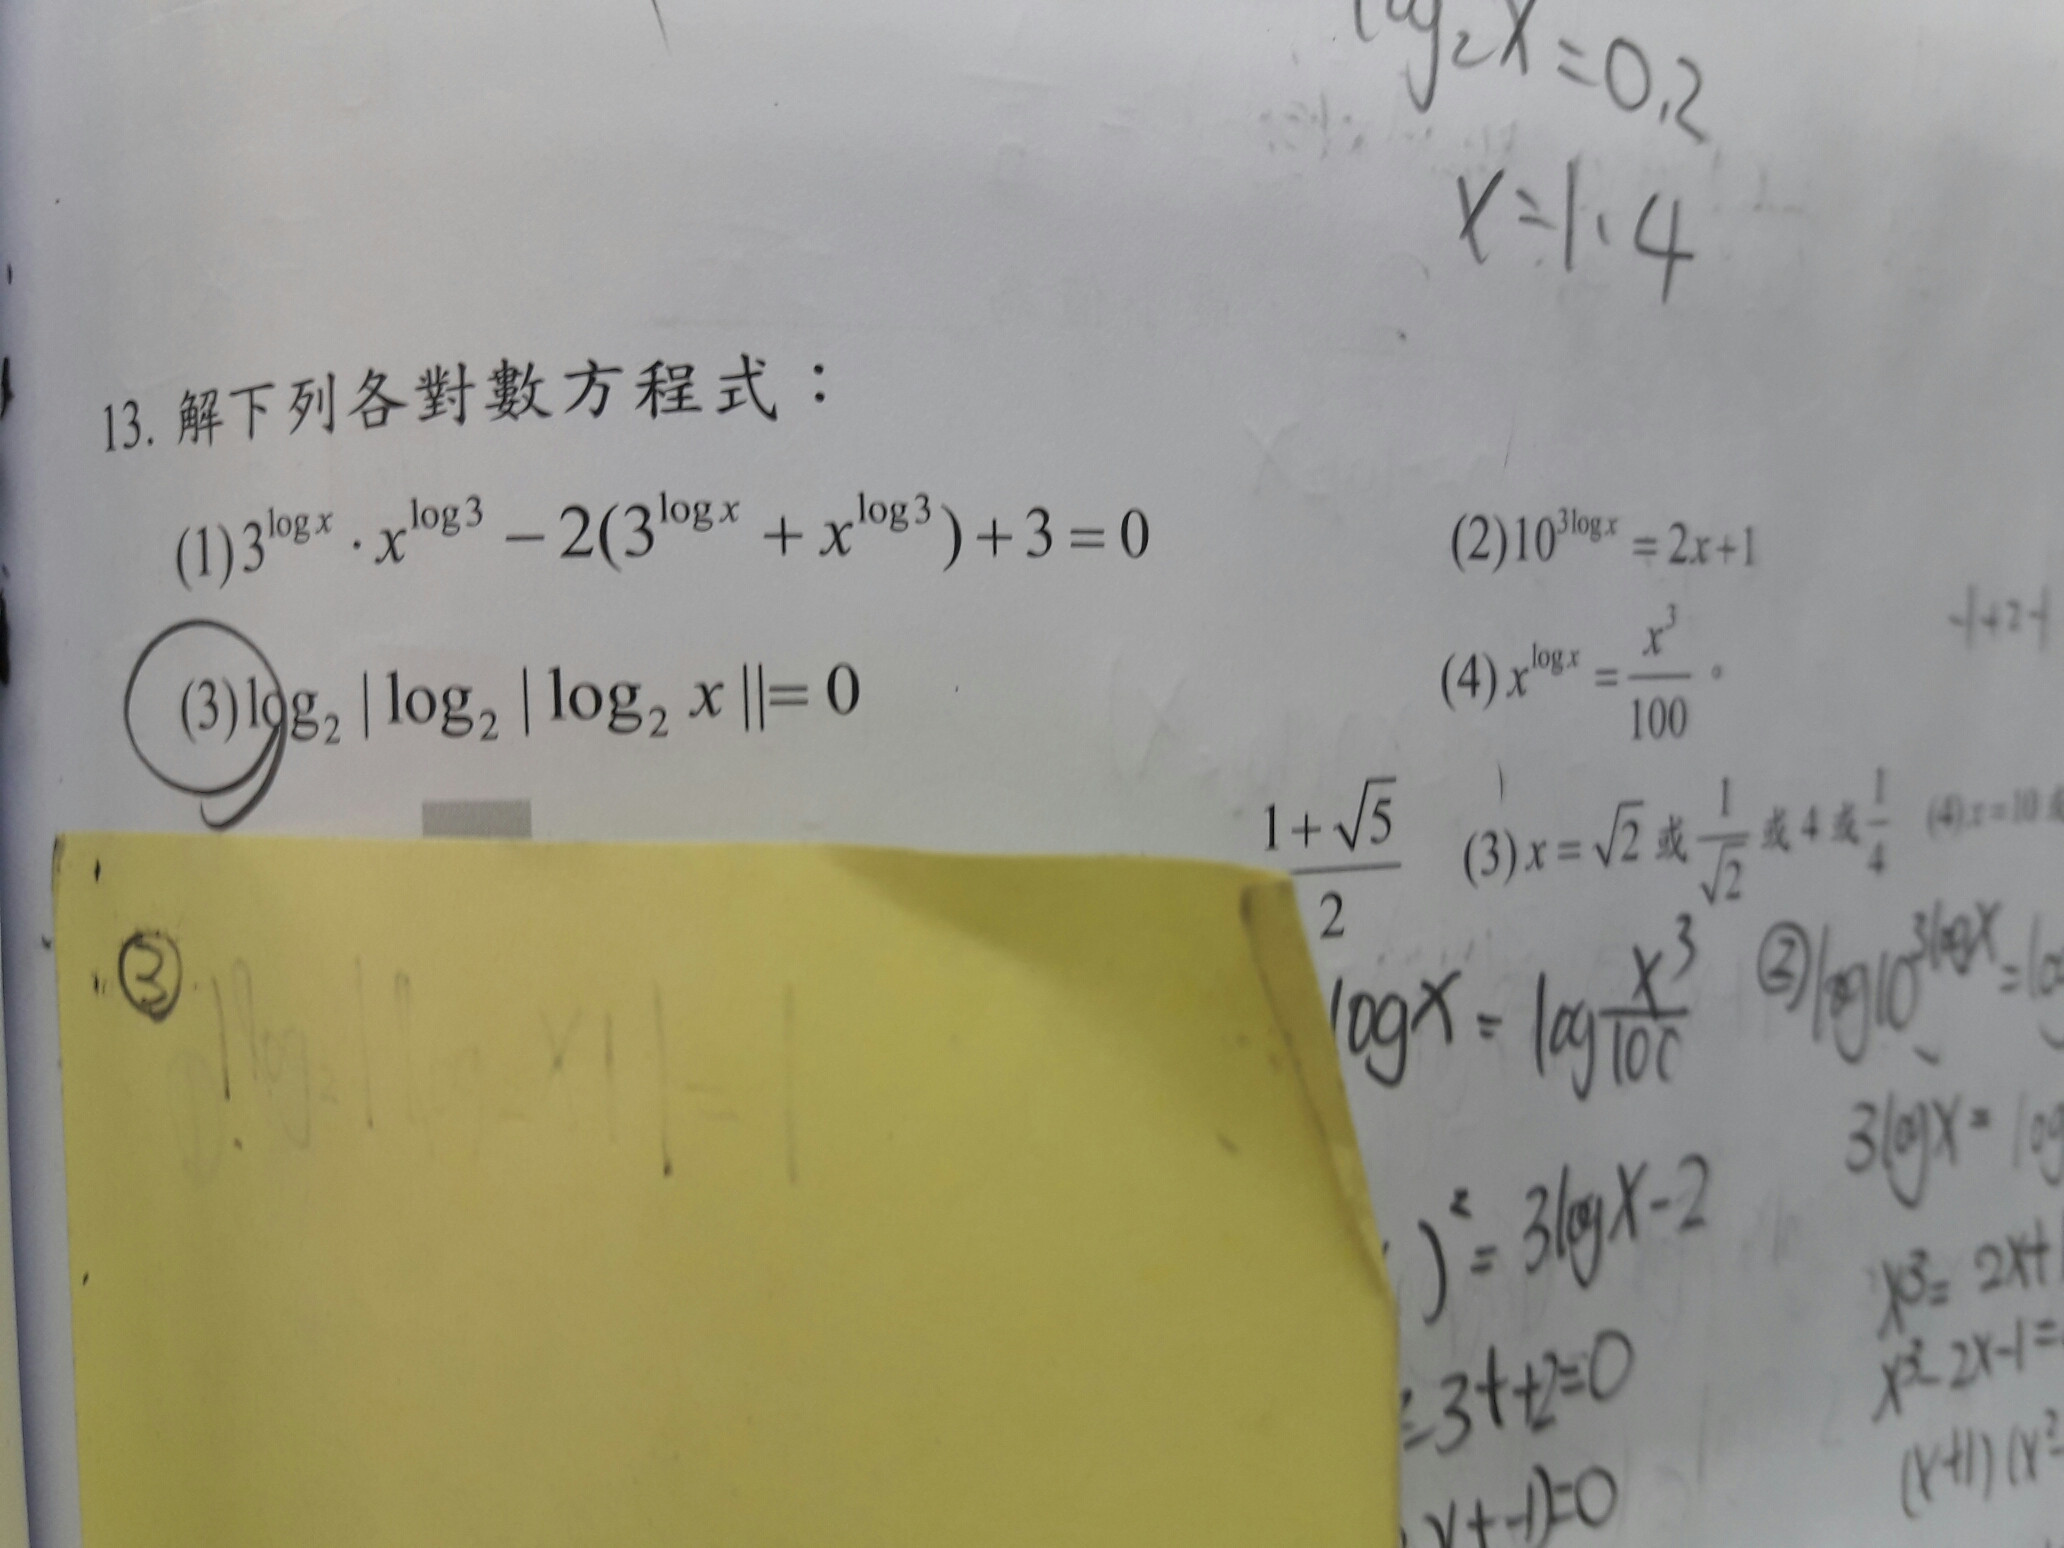 log₂x=0.2
x=1.4
13. 解下列各對數方程式：
(1)3^{log x}·x^{log 3}－2(3^{log x}＋x^{log 3})＋3＝0
(2)10^{3log x}＝2x+1
-1+2-1
(3)log₂|log₂|log₂ x||=0
(4)x^{log x}＝x³/100。
(1+√5)/2 (3)x＝√2或1/√2或4或1/4 (4)x=10或
③ |log₂|log₂x||=1
logx=log x³/100
②log10^{3logx}=lo
3logx= log
)²=3logx-2
x³= 2x+1
-3t+2=0
x³-2x-1=
(x+1)(x²-
-1)=0